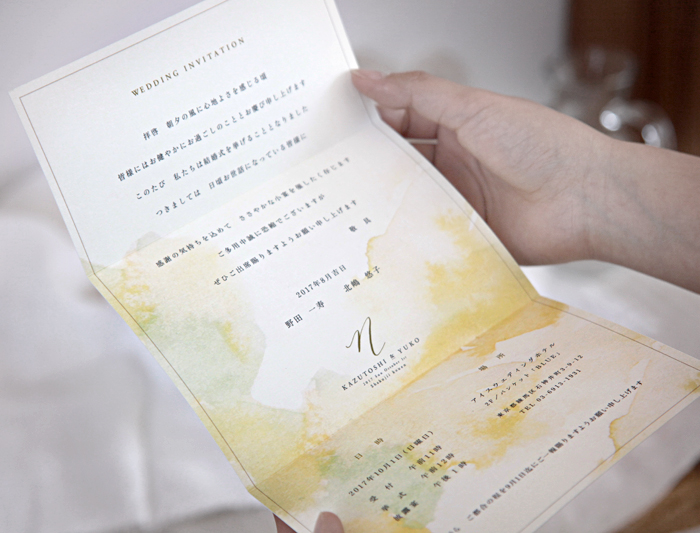 WEDDING INVITATION
拝啓 朝夕の風に心地よさを感じる頃
皆様にはお健やかにお過ごしのこととお慶び申し上げます
このたび 私たちは結婚式を挙げることとなりました
つきましては 日頃お世話になっている皆様に
感謝の気持ちを込めて ささやかな小宴を催したく存じます
ご多用中誠に恐縮でございますが
ぜひご出席賜りますようお願い申し上げます
敬具
2017年8月吉日
野田 一寿 北嶋 悠子
n
KAZUTOSHI & YUKO
2017 Sun October 1st
日時
2017年10月1日(日曜日)
受付 午前11時
挙式 午前12時
披露宴 午後1時
場所
アイスウェディングホテル
2F/バンケット「BLUE」
東京都練馬区石神井町3-9-12
TEL 03-6913-1931
ご都合の程を9月1日迄にご一報賜りますようお願い申し上げます